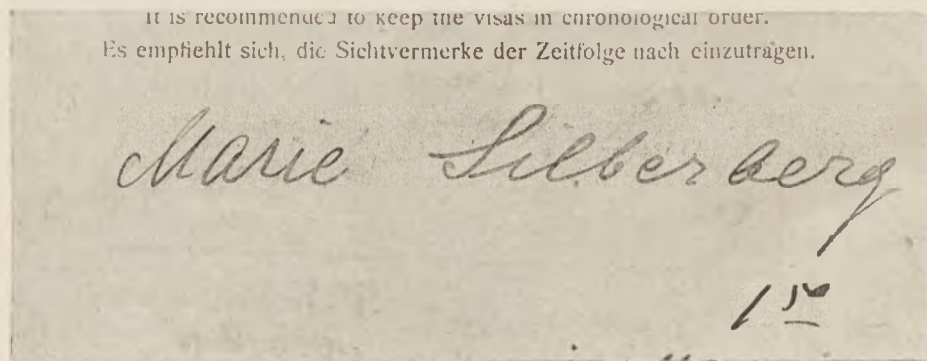 It is recommended to keep the visas in chronological order.
Es empfiehlt sich, die Sichtvermerke der Zeitfolge nach einzutragen.
Marie Silberberg